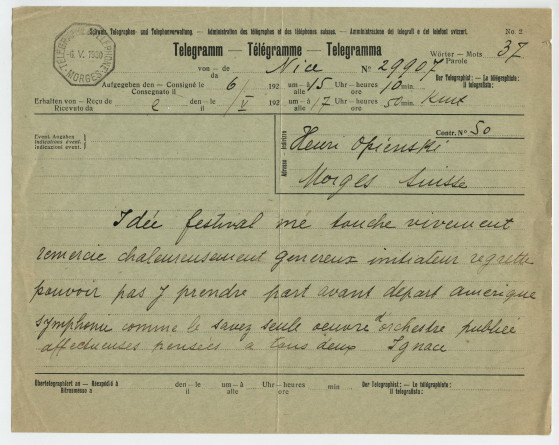 Schweiz. Telegraphen- und Telephonverwaltung. — Administration des télégraphes et des téléphones suisses. — Amministrazione dei telegrafi e dei telefoni svizzeri.
No 2
TELEGRAPH TELEPHON
6.V.1930
MORGES
Telegramm — Télégramme — Telegramma
Wörter – Mots
Parole
37
von – de
da
Nice
No 29907
Aufgegeben den – Consigné le
Consegnato il
6
192
um – à
alle
15
Uhr – heures
ore
10 min.
Der Telegraphist: – Le télégraphiste:
Il telegrafista:
Erhalten von – Reçu de
Ricevuto da
den – le
il
V
192
um – à
alle
17
Uhr – heures
ore
50 min.
Event. Angaben
Indications évent.
Indicazioni event.
Adresse – Indirizzo
Contr. No 50
Henri Opienski
Morges Suisse
Idée festival mé touche vivement
remercie chaleureusement genereux initiateur regrette
pouvoir pas y prendre part avant départ amerique
symphonie comme le savez seule oeuvre d'orchestre publiée
affectueuses pensées a tous deux Ignace
Übertelegraphiert an – Réexpédié à
Ritrasmesso a
den – le
il
um – à
alle
Uhr – heures
ore
min
Der Telegraphist: – Le télégraphiste:
Il telegrafista: